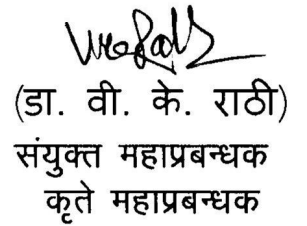 (डा. वी. के. राठी)
संयुक्त महाप्रबन्धक
कृते महाप्रबन्धक